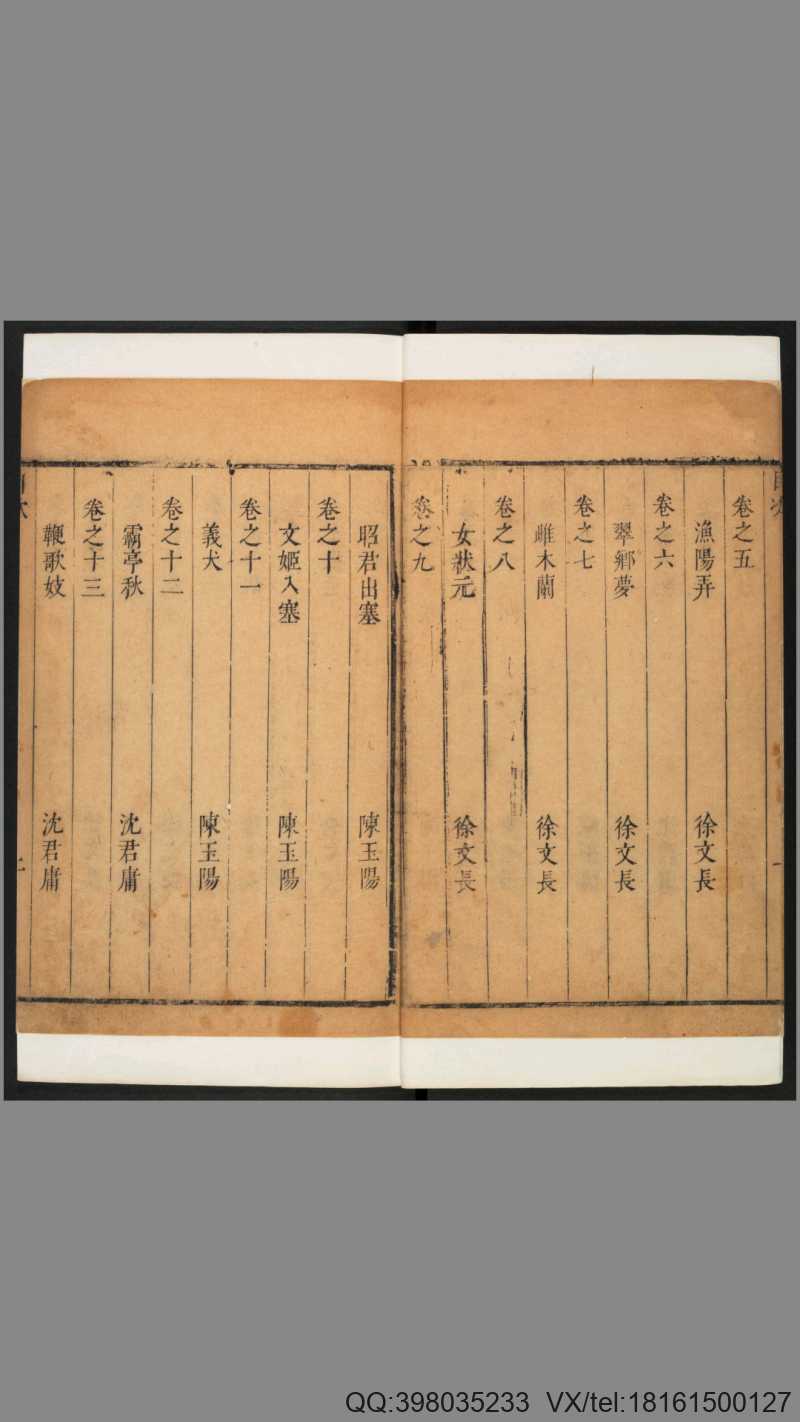 卷之五
漁陽弄 徐文長
卷之六
翠鄉夢 徐文長
卷之七
雌木蘭 徐文長
卷之八
女狀元 徐文長
卷之九
昭君出塞 陳玉陽
卷之十
文姬入塞 陳玉陽
卷之十一
義犬 陳玉陽
卷之十二
霸亭秋 沈君庸
卷之十三
鞭歌妓 沈君庸
QQ:398035233 VX/tel:18161500127